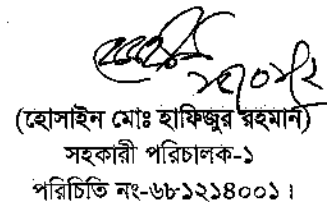 (হোসাইন মোঃ হাফিজুর রহমান)
সহকারী পরিচালক-১
পরিচিতি নং-৬৮১২১৪০০১।